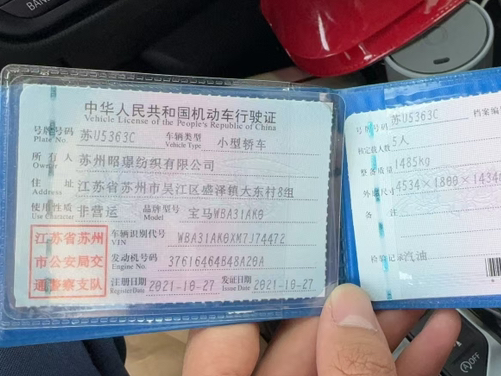 中华人民共和国机动车行驶证
Vehicle License of the People's Republic of China
号牌号码 苏U5363C 车辆类型 小型轿车
Plate No. Vehicle Type
所有人 苏州昭璟纺织有限公司
Owner
住址 江苏省苏州市吴江区盛泽镇大东村8组
Address
使用性质 非营运 品牌型号 宝马WBA31AK0
Use Character Model
江苏省苏州
市公安局交
通警察支队
车辆识别代号 WBA31AK0XM7J74472
VIN
发动机号码 37616464B48A20A
Engine No.
注册日期 2021-10-27 发证日期 2021-10-27
Register Date Issue Date
号牌号码 苏U5363C 档案编
核定载人数 5人
整备质量 1485kg
外廓尺寸 4534×1800×1434
备注
检验记录 汽油